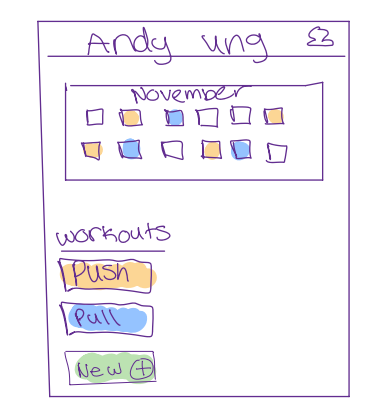 Andy ung
November
workouts
Push
Pull
New +